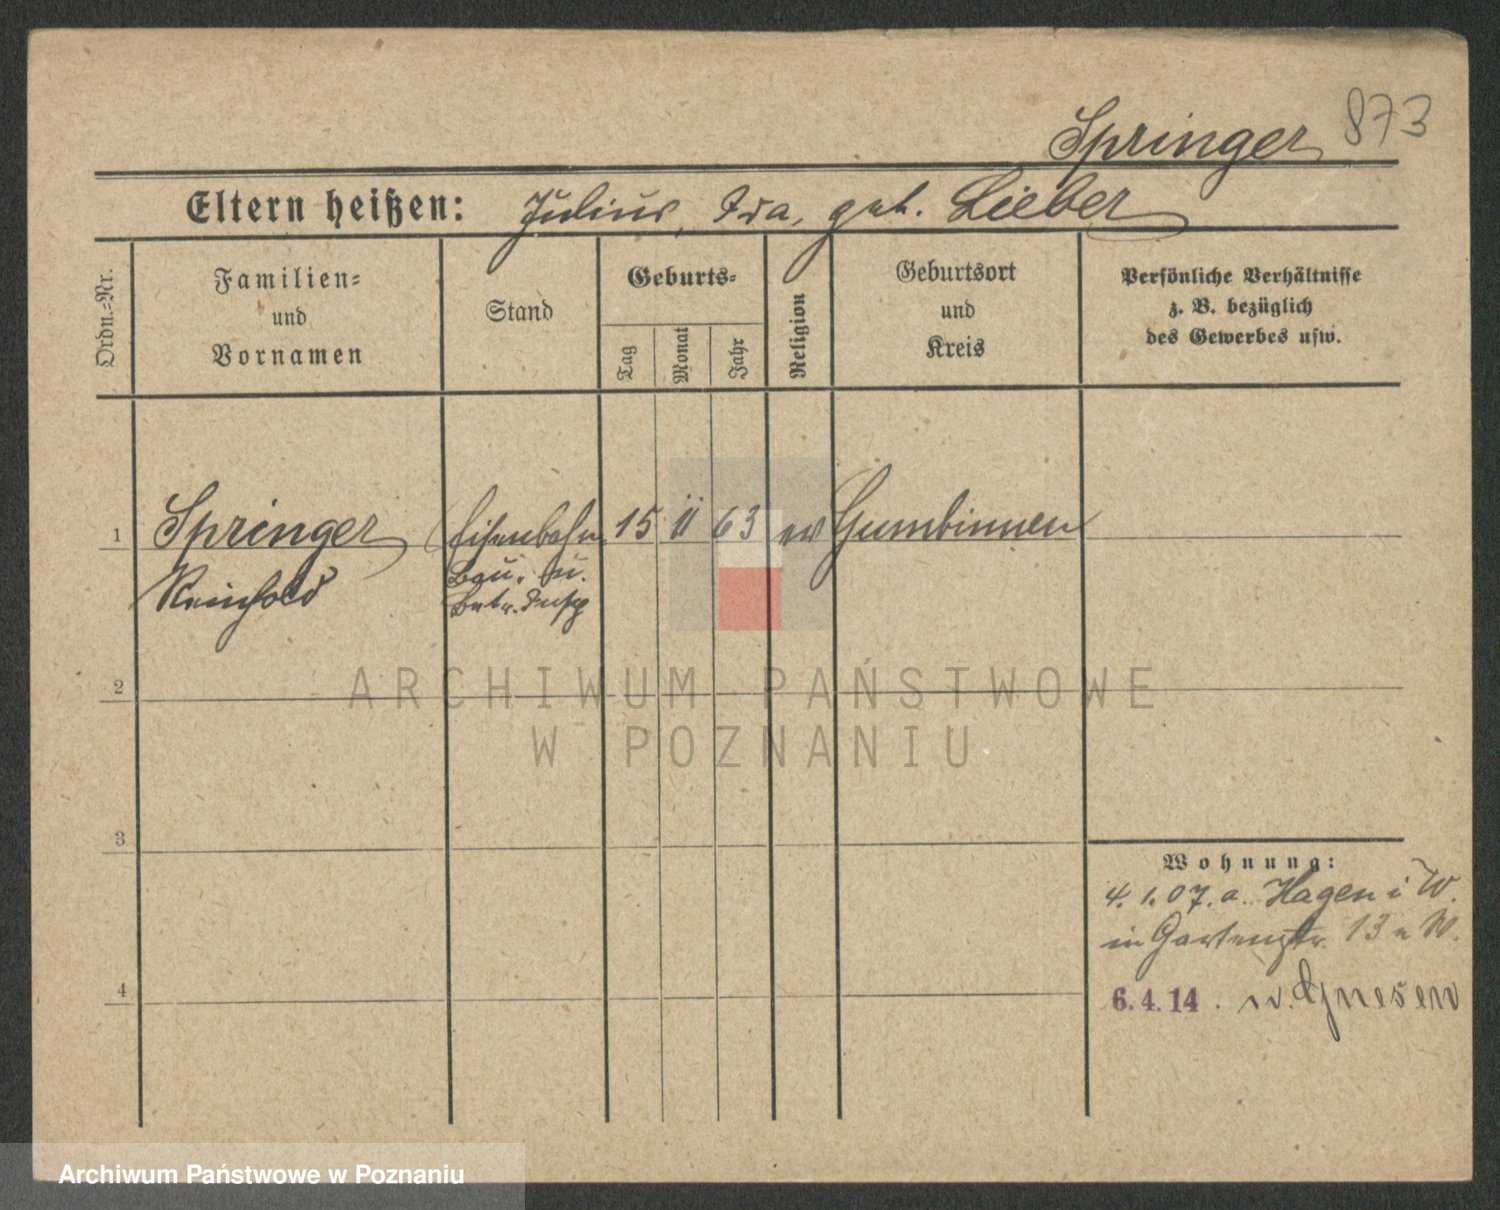 Springer 873
Eltern heißen: Julius, Ida, geb. Lieber
Ordn.=Nr.
Familien=
und
Vornamen
Stand
Geburts=
Tag
Monat
Jahr
Religion
Geburtsort
und
Kreis
Persönliche Verhältnisse
z. B. bezüglich
des Gewerbes usw.
1 Springer Eisenbahn- 15 11 63 ev Gumbinnen
Reinhold
Bau. u.
Betr. Insp
2
3
4
Wohnung:
4. 1. 07. a. Hagen i W.
in Gartenstr. 13 a W.
6. 4. 14. n. Gnesen
ARCHIWUM PAŃSTWOWE
W POZNANIU
Archiwum Państwowe w Poznaniu